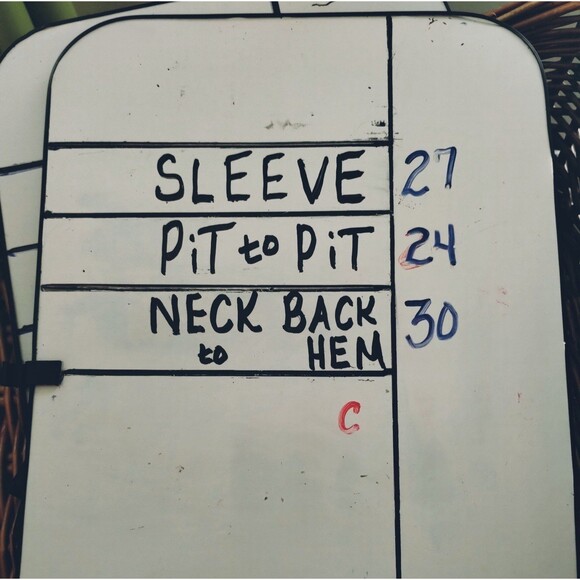 SLEEVE 27
PiT to PiT 24
NECK BACK 30
to HEM
C